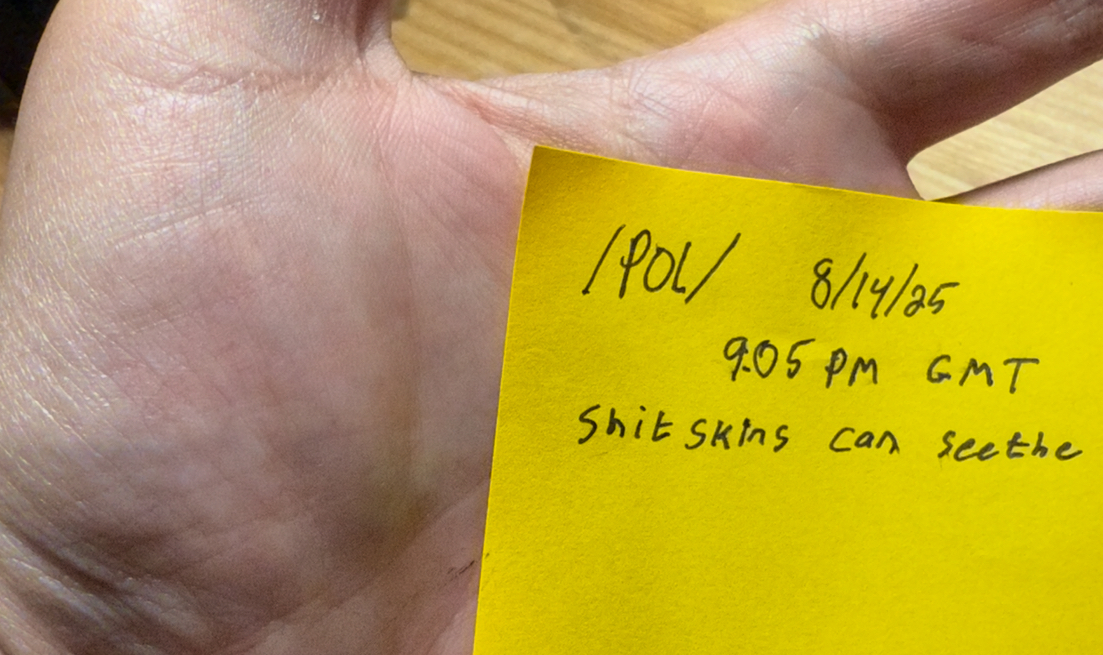 /POL/ 8/14/25
9:05 PM GMT
Shit skins can seethe